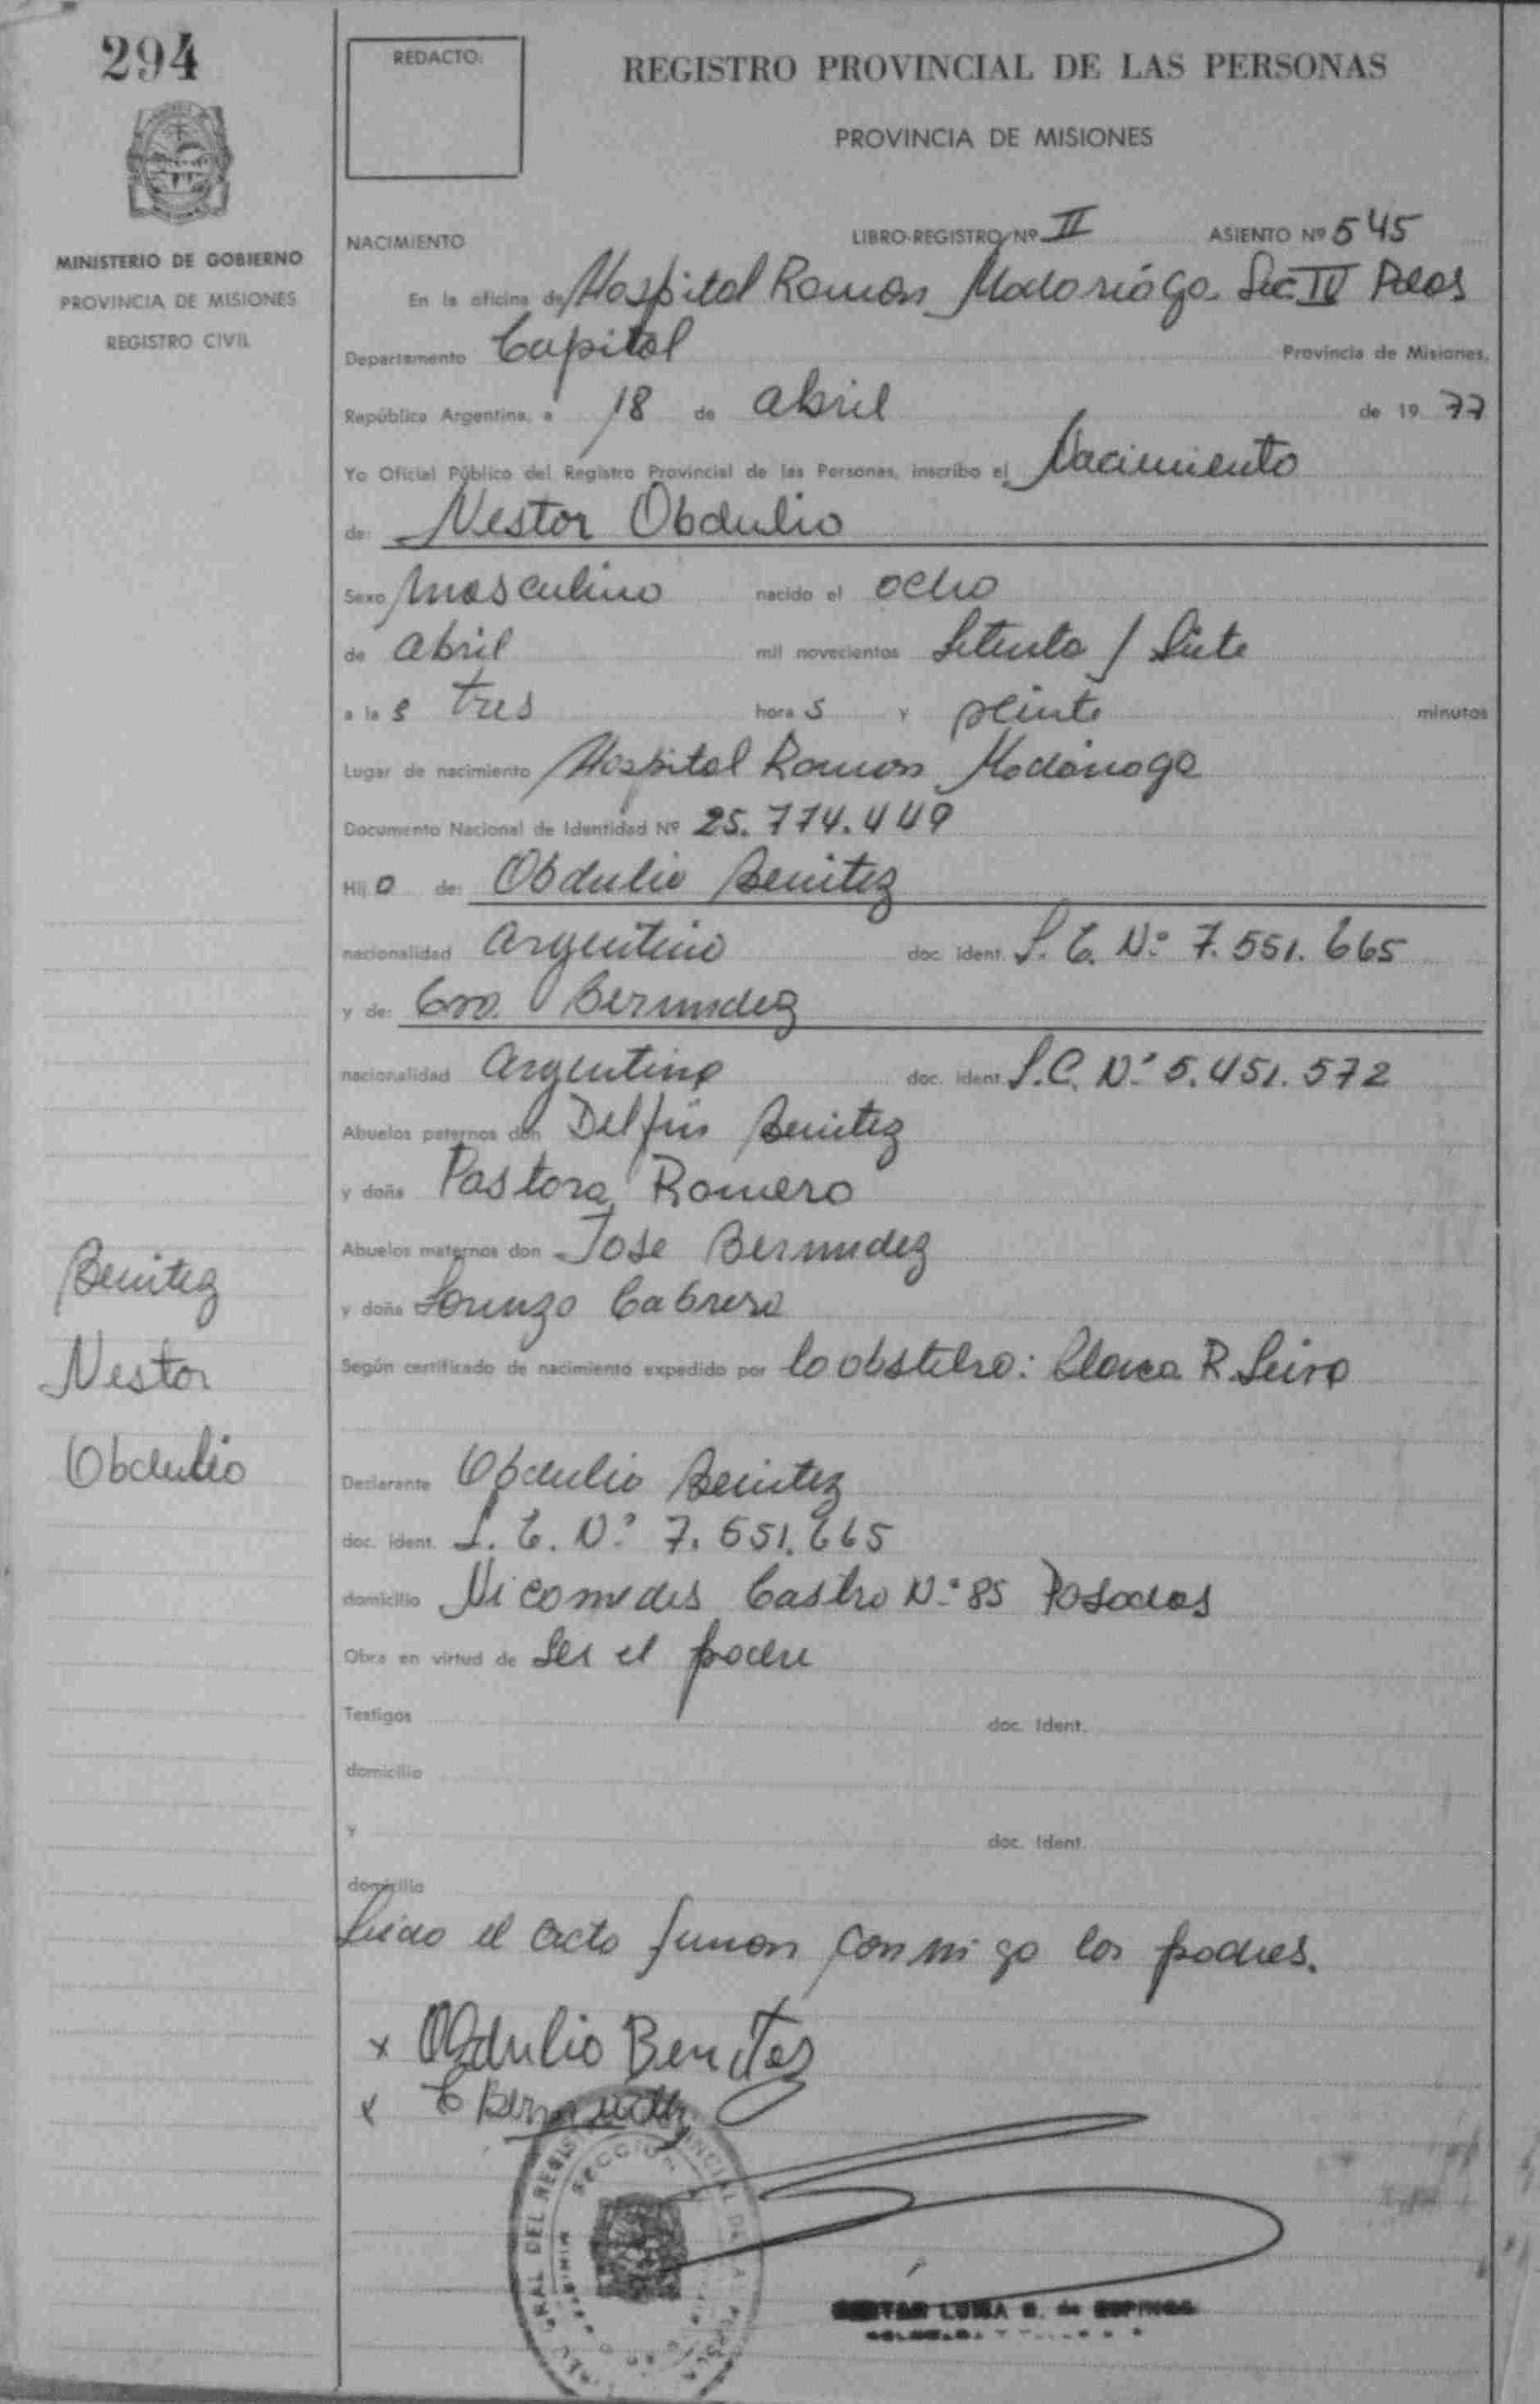 294
REDACTO:
REGISTRO PROVINCIAL DE LAS PERSONAS
PROVINCIA DE MISIONES
MINISTERIO DE GOBIERNO
PROVINCIA DE MISIONES
REGISTRO CIVIL
NACIMIENTO LIBRO-REGISTRO Nº II ASIENTO Nº 545
En la oficina de Hospital Ramon Madariaga Sec IV Pdas
Departamento Capital Provincia de Misiones,
República Argentina, a 18 de abril de 19 77
Yo Oficial Público del Registro Provincial de las Personas, inscribo el Nacimiento
de: Nestor Obdulio
Sexo masculino nacido el ocho
de abril mil novecientos Setenta / Siete
a la s tres hora s y veinte minutos
Lugar de nacimiento Hospital Ramon Madariaga
Documento Nacional de Identidad Nº 25.774.449
Hij o de: Obdulio Benitez
nacionalidad argentino doc. ident. L. E. Nº 7.551.665
y de: Eva Bermudez
nacionalidad argentina doc. ident. L.C. Nº 5.451.572
Abuelos paternos don Delfin Benitez
y doña Pastora Romero
Abuelos maternos don Jose Bermudez
y doña Lorenza Cabrera
Según certificado de nacimiento expedido por la obstetra: R. Leiva
Benitez
Nestor
Obdulio
Declarante Obdulio Benitez
doc. ident. L. E. Nº 7.551.665
domicilio Nicomedes Castro Nº 85 Posadas
Obra en virtud de Ser el padre
Testigos doc. Ident.
domicilio
y doc. Ident.
domicilio
Leido el acta firman conmigo los padres.
x Obdulio Benitez
x E Bermudez
SECCION